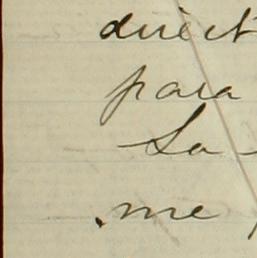 direct
para
La
me